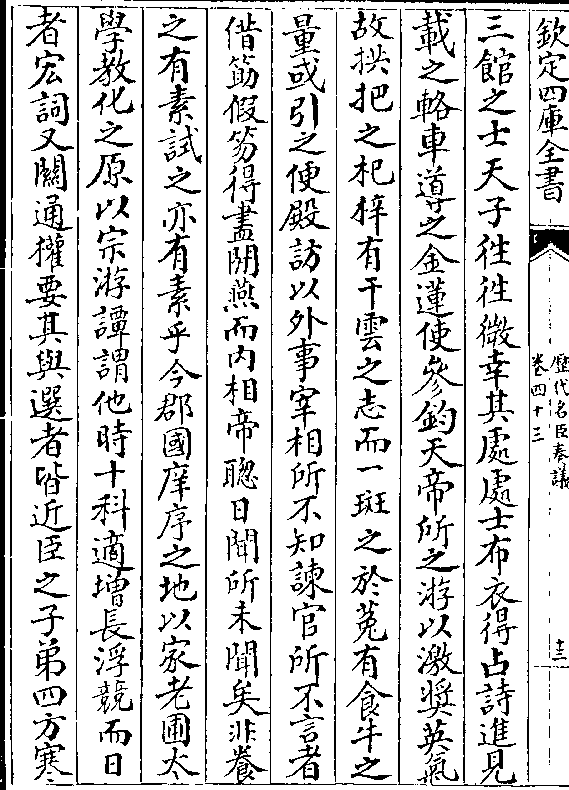 欽定四庫全書
歷代名臣奏議
卷四十三
十三
三館之士天子往往微幸其處處士布衣得占詩進見
載之輅車導之金蓮使參鈞天帝所之游以激奬英氣
故拱把之𣏌梓有干雲之志而一斑之於菟有食牛之
量或引之便殿訪以外事宰相所不知諫官所不言者
借筯假笏得盡閒燕而内相帝聰日聞所未聞矣非養
之有素試之亦有素乎今郡國庠序之地以家老圃太
學教化之原以宗游譚謂他時十科適增長浮競而日
者宏詞又關通權要其與選者皆近臣之子弟四方寒